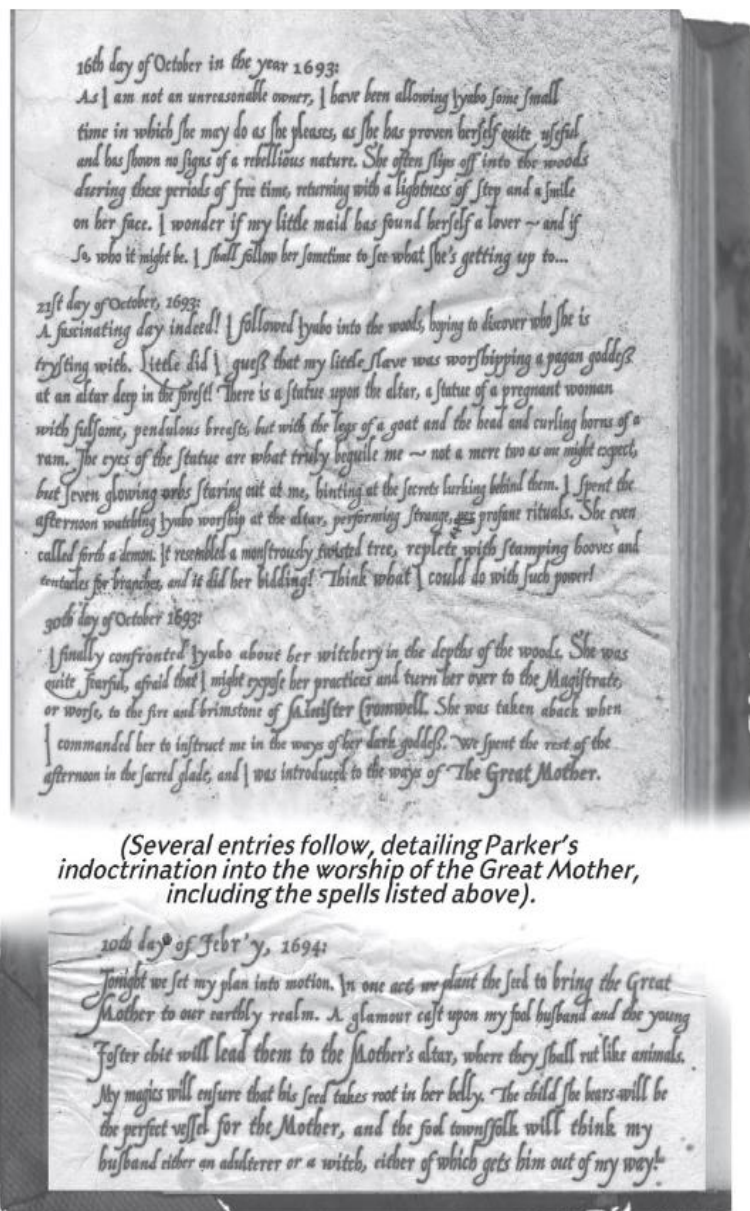 16th day of October in the year 1693:
As I am not an unreasonable owner, I have been allowing Iyabo ſome ſmall
time in which ſhe may do as ſhe pleaſes, as ſhe has proven herſelf quite uſeful
and has ſhown no ſigns of a rebellious nature. She often ſlips off into the woods
during theſe periods of free time, returning with a lightneſs of ſtep and a ſmile
on her face. I wonder if my little maid has found herſelf a lover ~ and if
ſo, who it might be. I ſhall follow her ſometime to ſee what ſhe's getting up to...
21ſt day of October, 1693:
A faſcinating day indeed! I followed Iyabo into the woods, hoping to diſcover who ſhe is
tryſting with. Little did I gueß that my little ſlave was worſhipping a pagan goddeß
at an altar deep in the foreſt! There is a ſtatue upon the altar, a ſtatue of a pregnant woman
with fulſome, pendulous breaſts, but with the legs of a goat and the head and curling horns of a
ram. The eyes of the ſtatue are what truly beguile me ~ not a mere two as one might expect,
but ſeven glowing orbs ſtaring out at me, hinting at the ſecrets lurking behind them. I ſpent the
afternoon watching Iyabo worſhip at the altar, performing ſtrange, yes profane rituals. She even
called forth a demon. It reſembled a monſtrouſly twiſted tree, replete with ſtamping hooves and
tentacles for branches, and it did her bidding! Think what I could do with ſuch power!
30th day of October 1693:
I finally confronted Iyabo about her witchery in the depths of the woods. She was
quite fearful, afraid that I might expoſe her practices and turn her over to the Magiſtrate,
or worſe, to the fire and brimſtone of Miniſter Cromwell. She was taken aback when
I commanded her to inſtruct me in the ways of her dark goddeß. We ſpent the reſt of the
afternoon in the ſacred glade, and I was introduced to the ways of The Great Mother.
(Several entries follow, detailing Parker's
indoctrination into the worship of the Great Mother,
including the spells listed above).
10th day of Febr'y, 1694:
Tonight we ſet my plan into motion. In one act, we plant the ſeed to bring the Great
Mother to our earthly realm. A glamour caſt upon my fool huſband and the young
Foſter chit will lead them to the Mother's altar, where they ſhall rut like animals.
My magics will enſure that his ſeed takes root in her belly. The child ſhe bears will be
the perfect veſſel for the Mother, and the fool townſfolk will think my
huſband either an adulterer or a witch, either of which gets him out of my way!